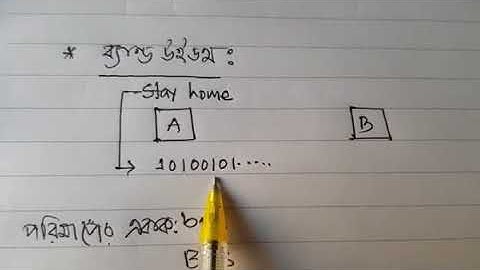 * ব্যান্ড উইডথ :
Stay home
A B
10100101.....
পরিমাপের একক: